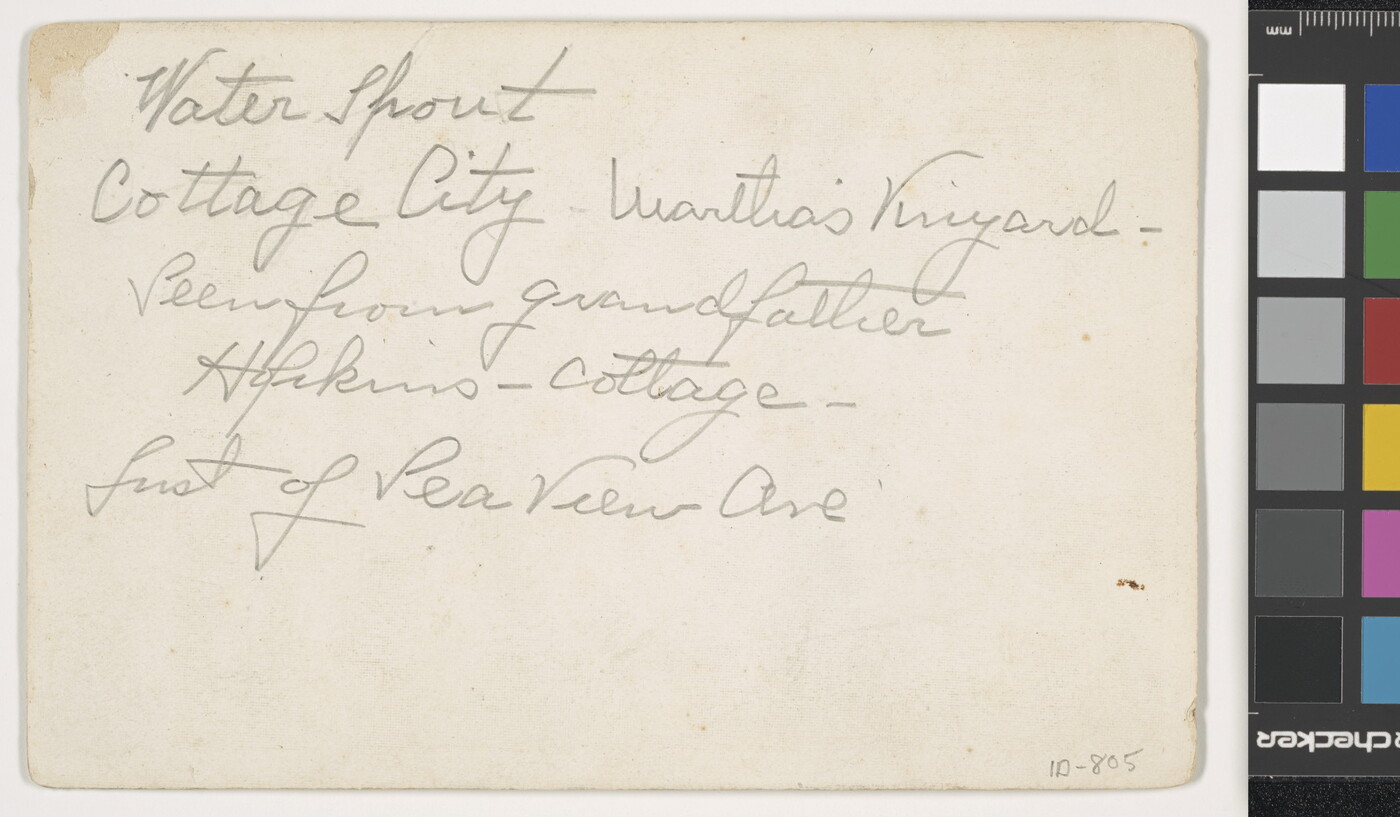 Water Spout
Cottage City - Martha's Vinyard -
Seen from grandfather
Hopkins - Cottage -
Just of Sea View Ave
ID-805
mm
checker